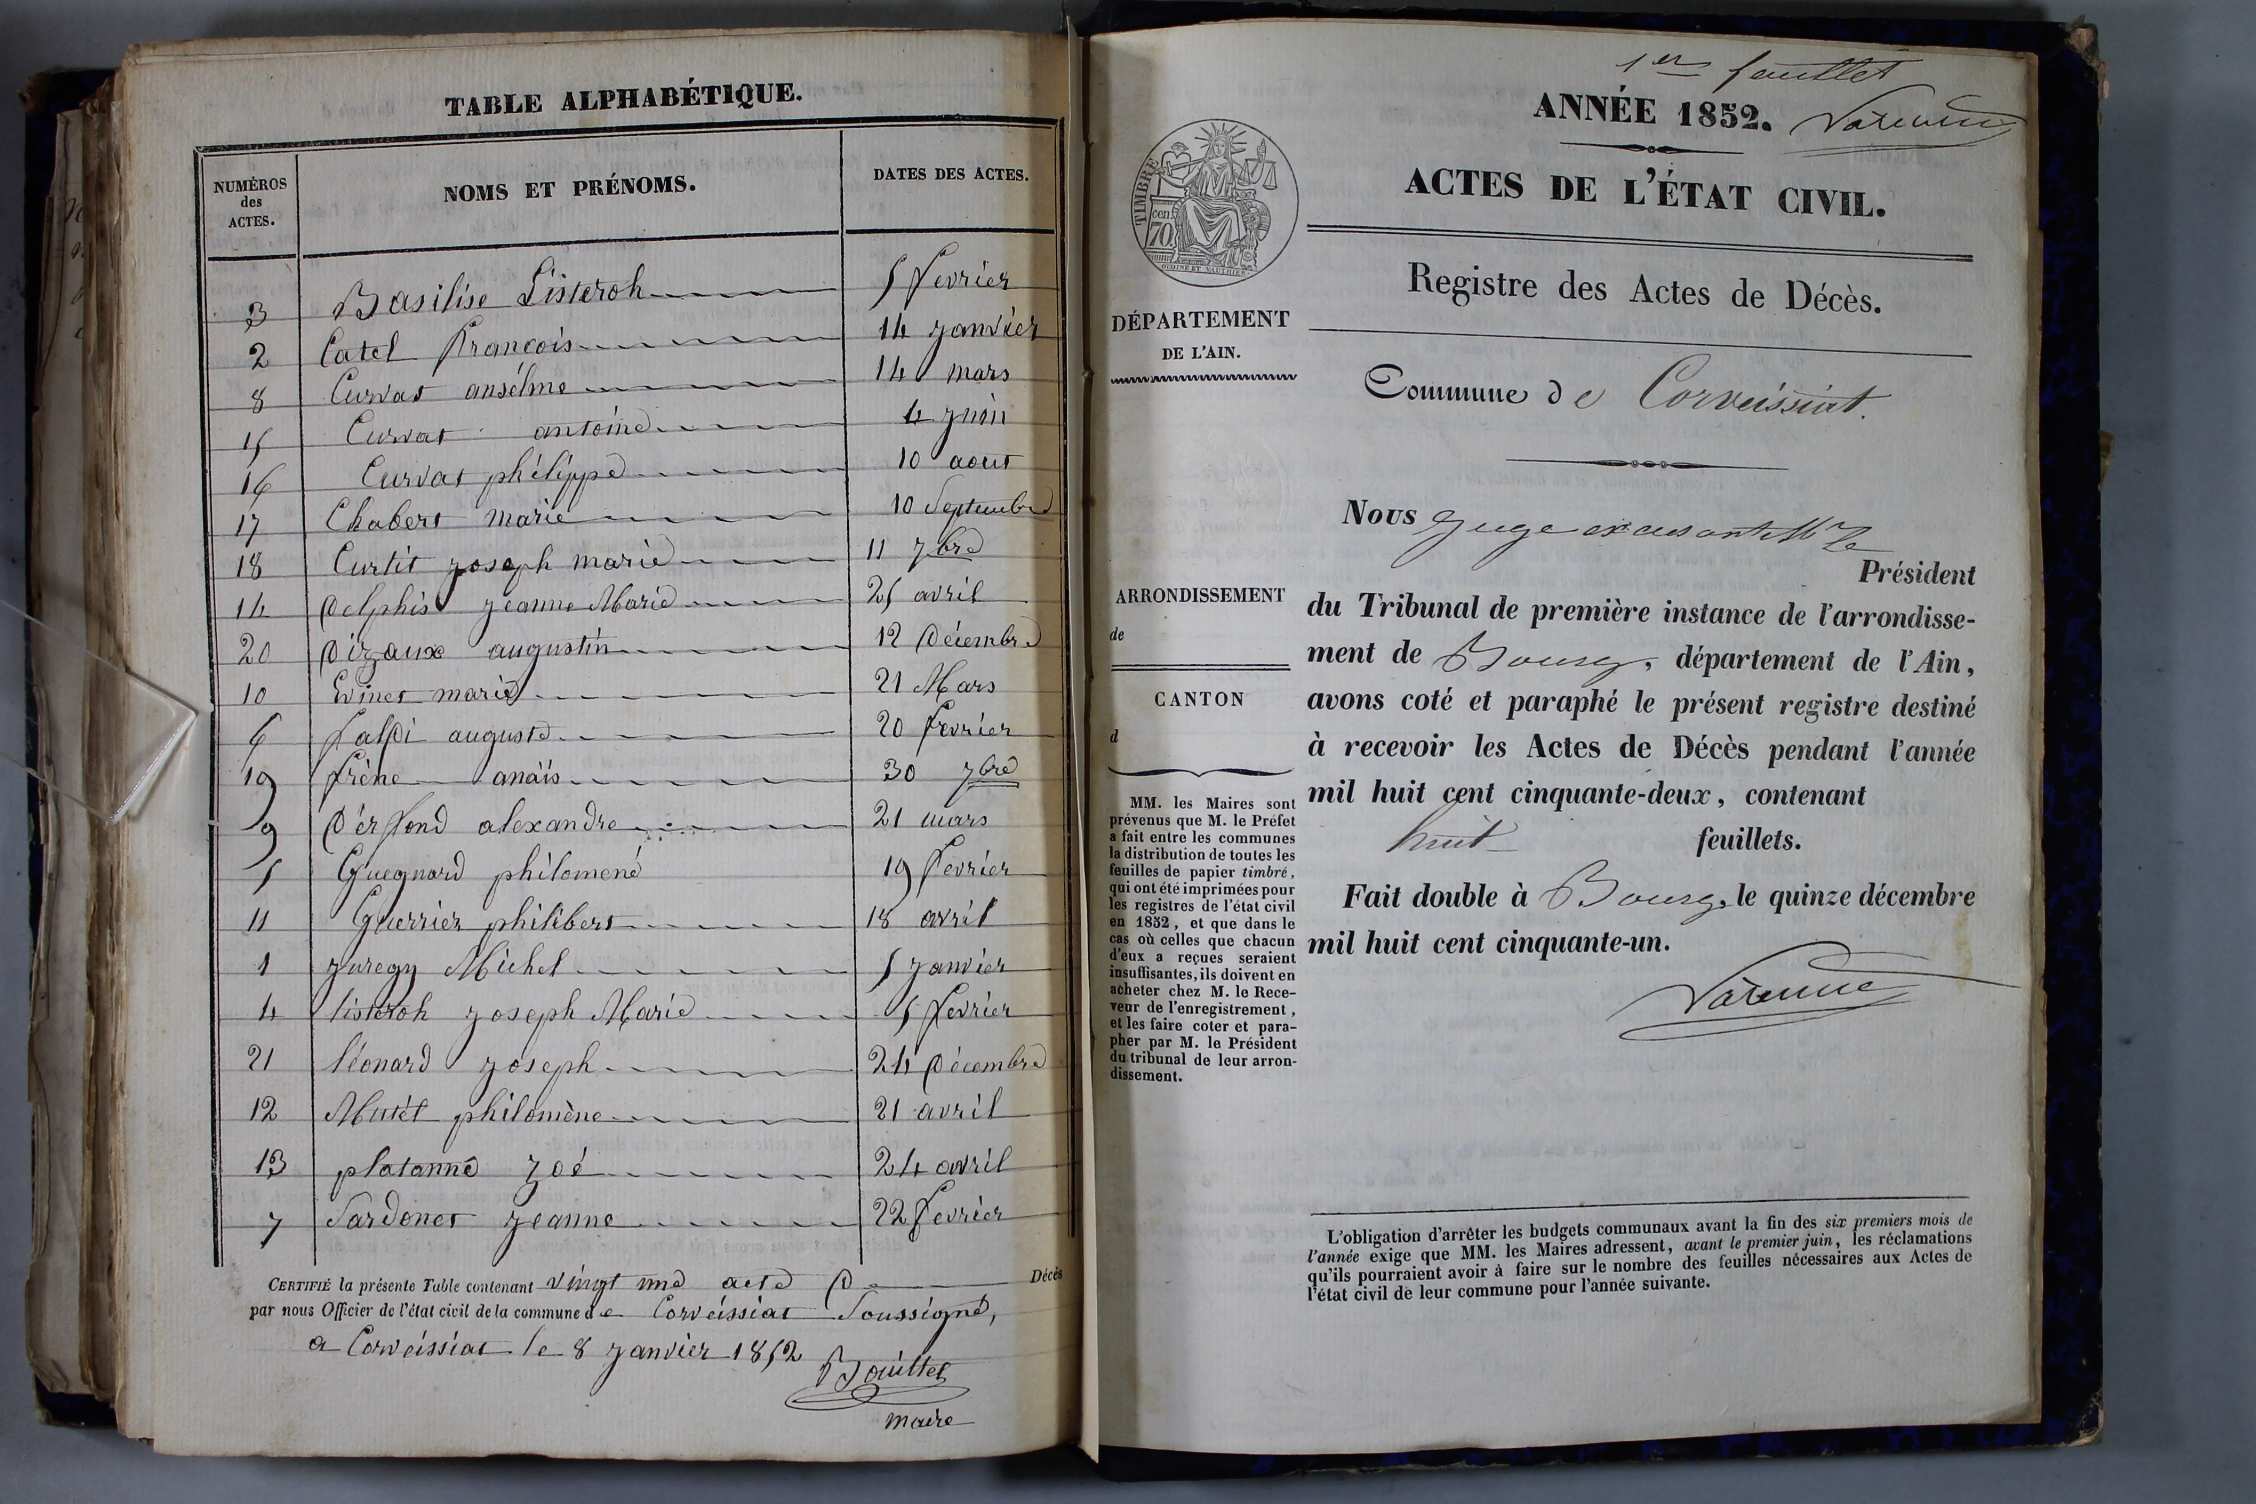 TABLE ALPHABÉTIQUE.
NUMÉROS des ACTES. NOMS ET PRÉNOMS. DATES DES ACTES.
3 Basilise Listeroh 5 fevrier
2 Catel François 14 janvier
8 Curvat anselme 14 mars
15 Curvat antoine 4 juin
16 Curvat philippe 10 aout
17 Chabert marie 10 Septembre
18 Curtit joseph marie 11 7bre
14 Delphis jeanne Marie 25 avril
20 Dizaux augustin 12 Décembre
10 Evinet marie 21 Mars
6 falpi auguste 20 fevrier
19 frène anaïs 30 7bre
9 Derfond alexandre 21 mars
5 Guegnard philomene 19 fevrier
11 Guerrier philibert 18 avril
1 juregy Michel 5 janvier
4 listeroh joseph Marie 5 fevrier
21 léonard joseph 24 Décembre
12 Mutel philomène 21 avril
13 platanne zoé 24 avril
7 Sardonet jeanne 22 fevrier
CERTIFIÉ la présente Table contenant vingt une acte D Décès
par nous Officier de l'état civil de la commune de Corveissiat Soussigné,
a Corveissiat le 8 janvier 1852
Bouillet
maire
1er feuillet
ANNÉE 1852. Varenne
ACTES DE L'ÉTAT CIVIL.
TIMBRE
70 cen.
Registre des Actes de Décès.
DÉPARTEMENT
DE L'AIN.
Commune de Corveissiat.
Nous juge excusant Mr le
Président
ARRONDISSEMENT
de
CANTON
d
du Tribunal de première instance de l'arrondisse-
ment de Bourg, département de l'Ain,
avons coté et paraphé le présent registre destiné
à recevoir les Actes de Décès pendant l'année
mil huit cent cinquante-deux, contenant
huit feuillets.
Fait double à Bourg, le quinze décembre
mil huit cent cinquante-un.
Varenne
MM. les Maires sont
prévenus que M. le Préfet
a fait entre les communes
la distribution de toutes les
feuilles de papier timbré,
qui ont été imprimées pour
les registres de l'état civil
en 1852, et que dans le
cas où celles que chacun
d'eux a reçues seraient
insuffisantes, ils doivent en
acheter chez M. le Rece-
veur de l'enregistrement,
et les faire coter et para-
pher par M. le Président
du tribunal de leur arron-
dissement.
L'obligation d'arrêter les budgets communaux avant la fin des six premiers mois de
l'année exige que MM. les Maires adressent, avant le premier juin, les réclamations
qu'ils pourraient avoir à faire sur le nombre des feuilles nécessaires aux Actes de
l'état civil de leur commune pour l'année suivante.